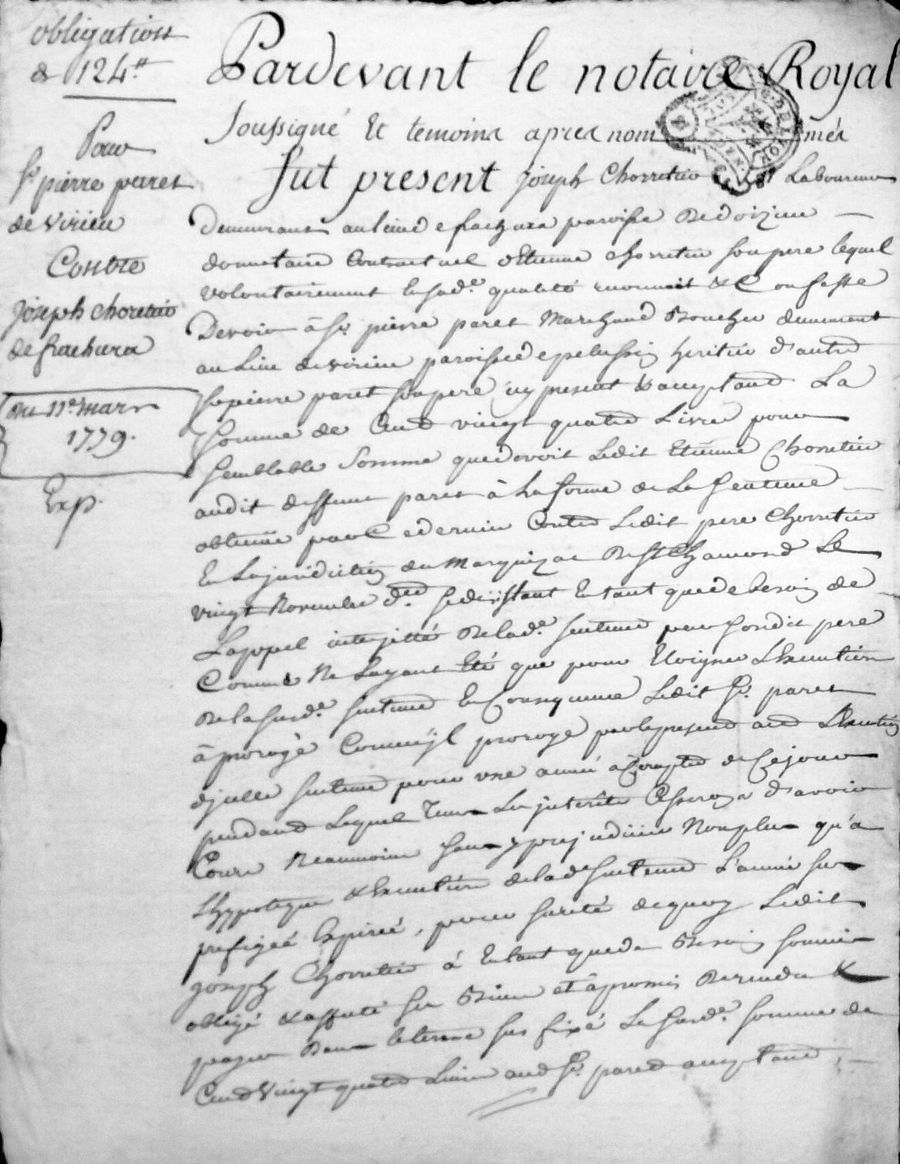 obligation
de 124#
Pour
Sr pierre paret
de virieu
Contre
joseph choretier
de frachura
du 11e mars
1779.
Exp.
Pardevant le notaire Royal
soussigné Et temoins apres nommés
fut present joseph Chorretier Laboureur
demeurant au lieu de frachura paroisse de doizieu
donnataire Contractuel d'Etienne chorretier son pere lequel
volontairement En sade. qualité reconnait & Confesse
Devoir à Sr. pierre paret Marchand Boucher demeurant
au Lieu de virieu paroisse de pelussin heritier d'autre
Sr pierre paret son pere icy present & acceptant La
somme de Cent vingt quatre Livre pour
semblable Somme que devoit Ledit Etienne Chorretier
audit deffunt paret à La forme de La sentence
obtenue par Ce dernier Contre Ledit pere Chorretier
En La juridiction du Marquizac de St Chamond Le
vingt Novembre der. se desistant En tant que de besoin de
L'appel interjetté de lade. sentence par sondit pere
Comme Ne L'ayant Eté que pour Eloigner L'Execution
de la susde. sentence En Consequence Ledit Sr. paret
à prorogé Comme jl proroge par le present acte L'Execution
d'jcelle sentence pour une année à Compter de Ce jour
pendant Lequel Tems Les jnterêts d'avoir
Cours Neanmoins sans prejudicier Nonplus qu'a
L'hyppoteque & Execution de lade sentence L'année sus
prefigée Expirée, pour sureté de quoy Ledit
joseph Chorretier à En tant que de Besoin soumis
obligé & affecté ses Biens et à promis de rendre &
payer Dans le terme sus fixé La susde. somme de
Cent Vingt quatre Livre aud Sr. paret acceptant